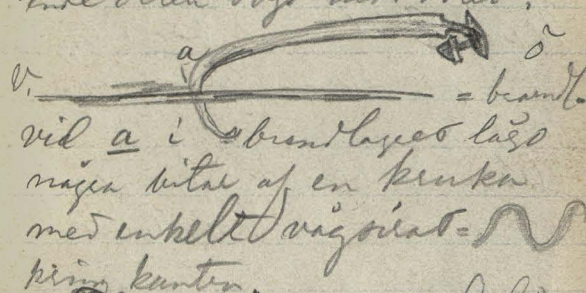 a
v. ö
= brandl.
vid a i brandlagret lågo
några bitar af en kruka
med enkelt vågsirat =
kring kanten.